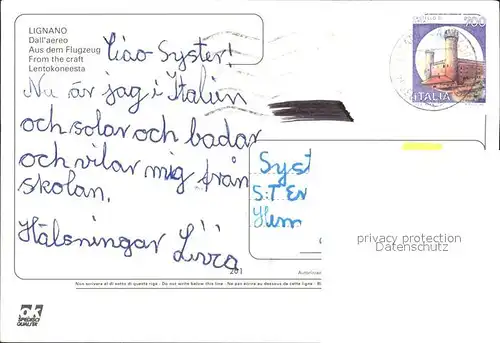 LIGNANO
Dall'aereo
Aus dem Flugzeug
From the craft
Lentokoneesta
Ciao Syster!
Nu är jag i Italien
och solar och badar
och vilar mig från
skolan.
Hälsningar
700
ITALIA
Syst
S:T Er
Hem
privacy protection
Datenschutz
201
Non scrivere al di sotto di questa riga - Do not write below this line - Ne pas écrire au dessous de cette ligne -